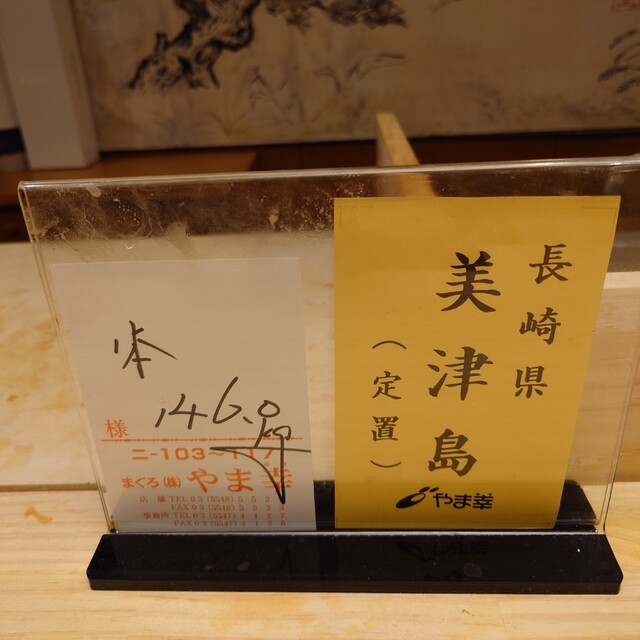 本
146.0
様
ニ-103~117
まぐろ(株)やま幸
店舗 TEL 03(5548)5
FAX 03(5548)5
事務所 TEL 03(5547)4
FAX 03(5547)4
長崎県
美津島
(定置)
やま幸